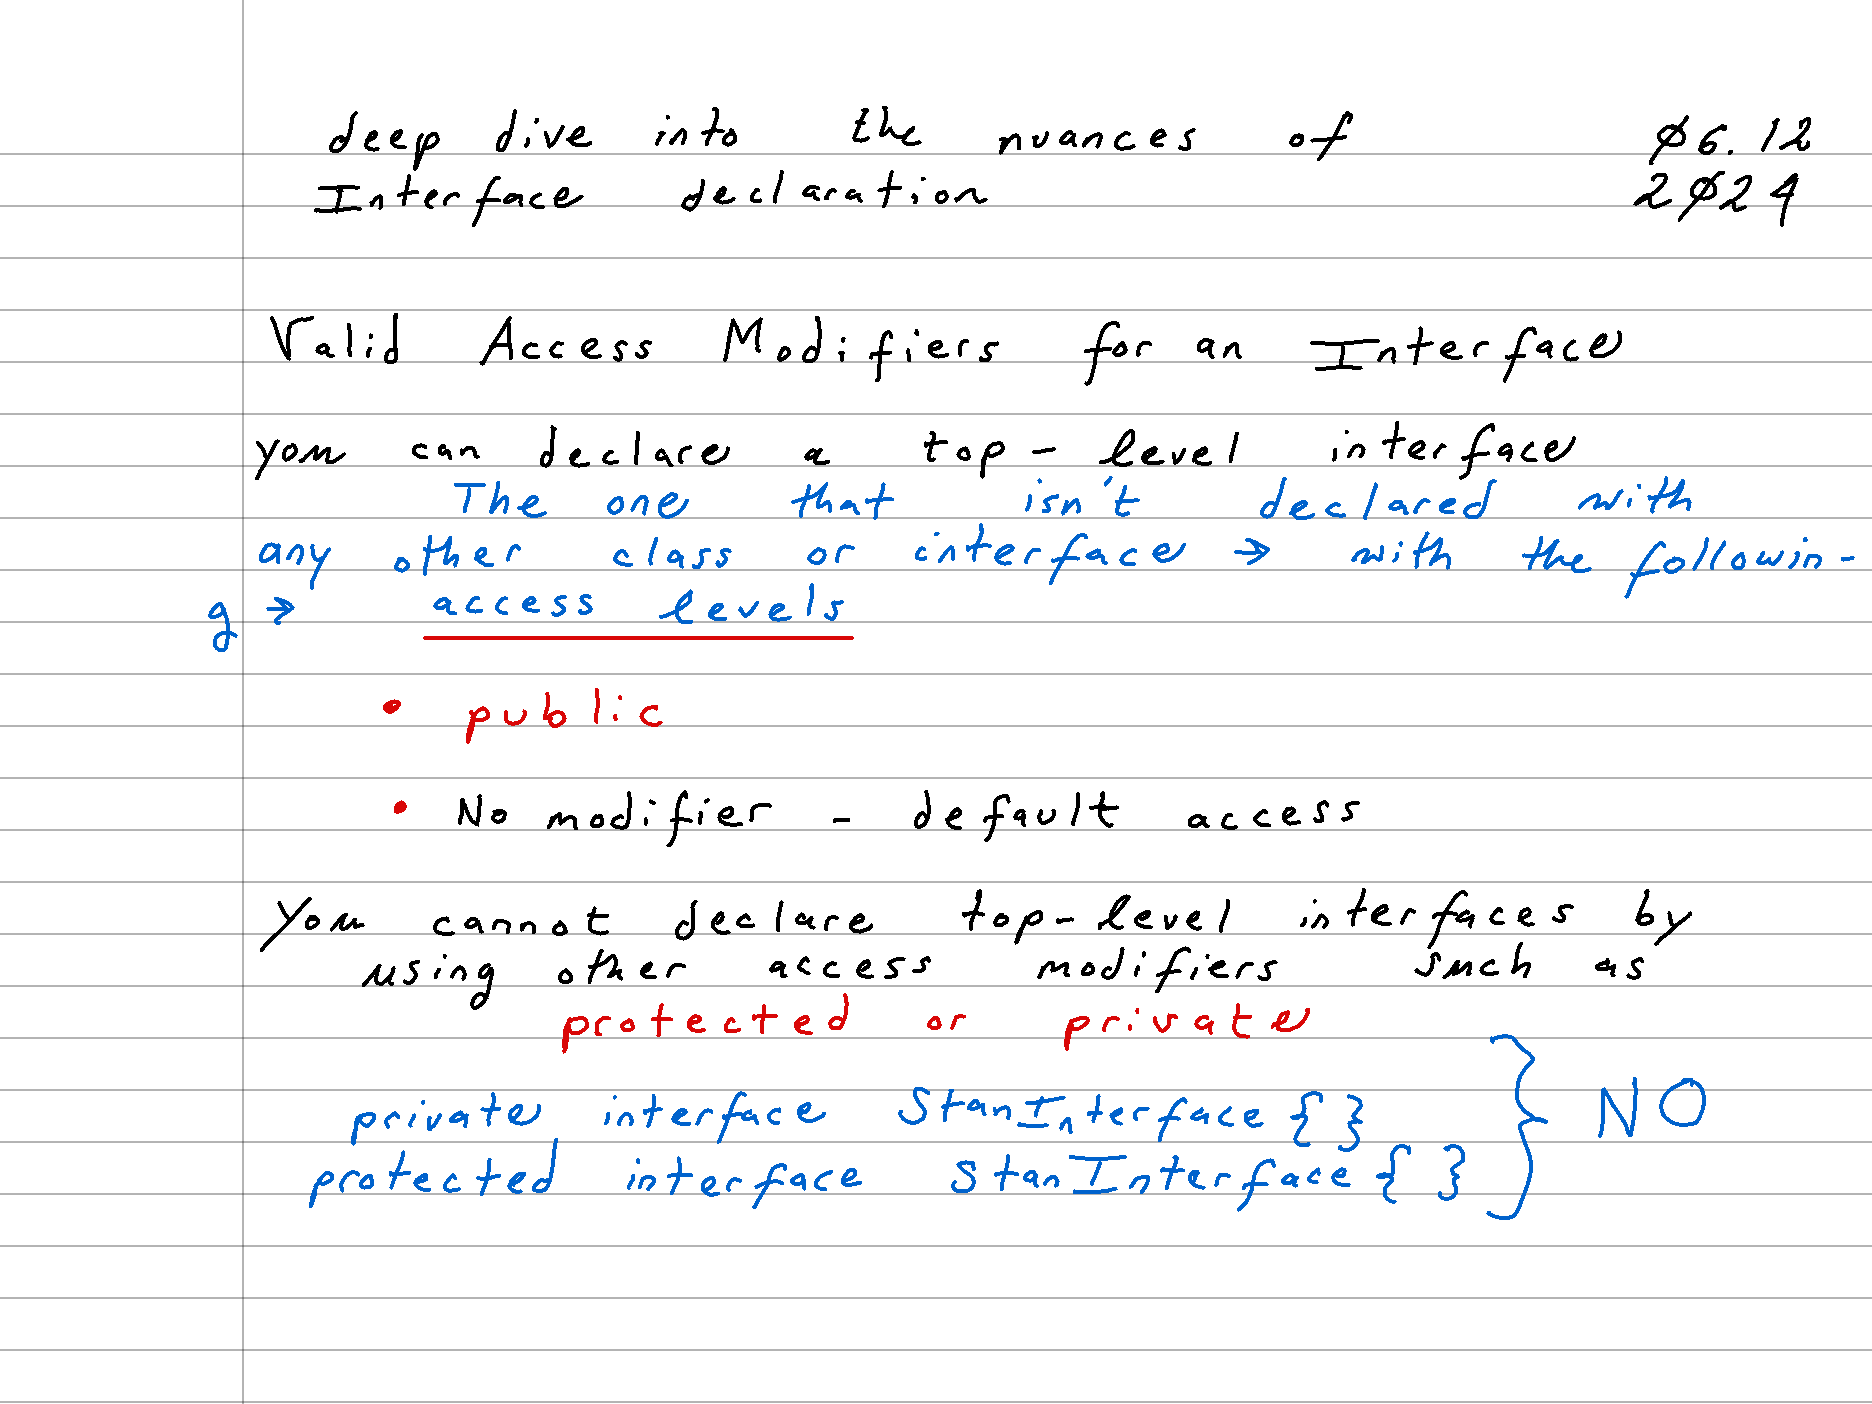 deep dive into the nuances of Ø6.12
Interface declaration 2Ø24
Valid Access Modifiers for an Interface
you can declare a top-level interface
The one that isn't declared with
any other class or interface → with the followin-
g → access levels
• public
• No modifier - default access
You cannot declare top-level interfaces by
using other access modifiers such as
protected or private
private interface StanInterface { }
protected interface StanInterface { } } NO